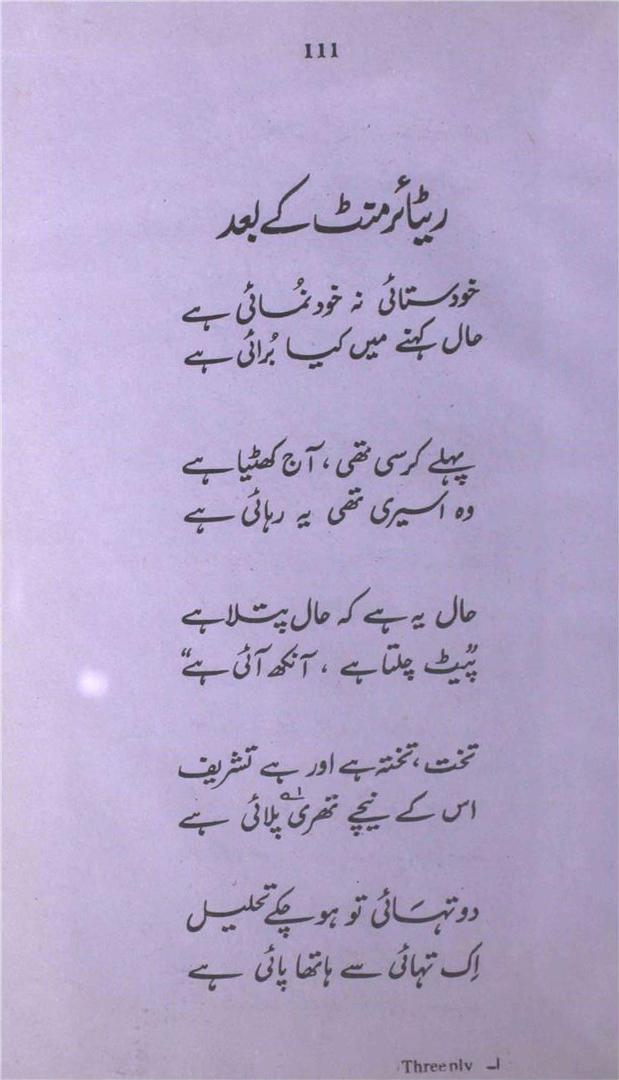 111
ریٹائرمنٹ کے بعد
خودستائی نہ خود نُمائی ہے
حال کہنے میں کیا بُرائی ہے
پہلے کرسی تھی، آج کھٹیا ہے
وہ اسیری تھی یہ رہائی ہے
حال یہ ہے کہ حال پتلا ہے
"پیٹ چلتا ہے، آنکھ آئی ہے"
تخت، تختہ ہے اور ہے تشریف
اس کے نیچے تھری پلائی ۱؎ ہے
دو تہَائی تو ہو چکے تحلیل
اِک تہائی سے ہاتھا پائی ہے
۱؎ Threeply